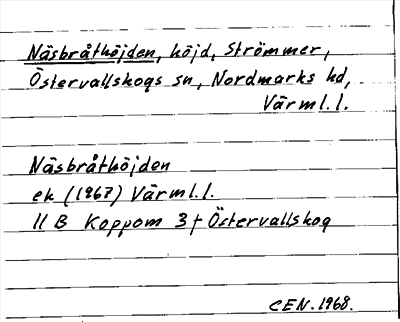 Näsbråthöjden, höjd, Strömmer,
Östervallskogs sn, Nordmarks hd,
Värml.l.
Näsbråthöjden
ek (1967) Värml.l.
11 B Koppom 3f Östervallskog
CEN. 1968.